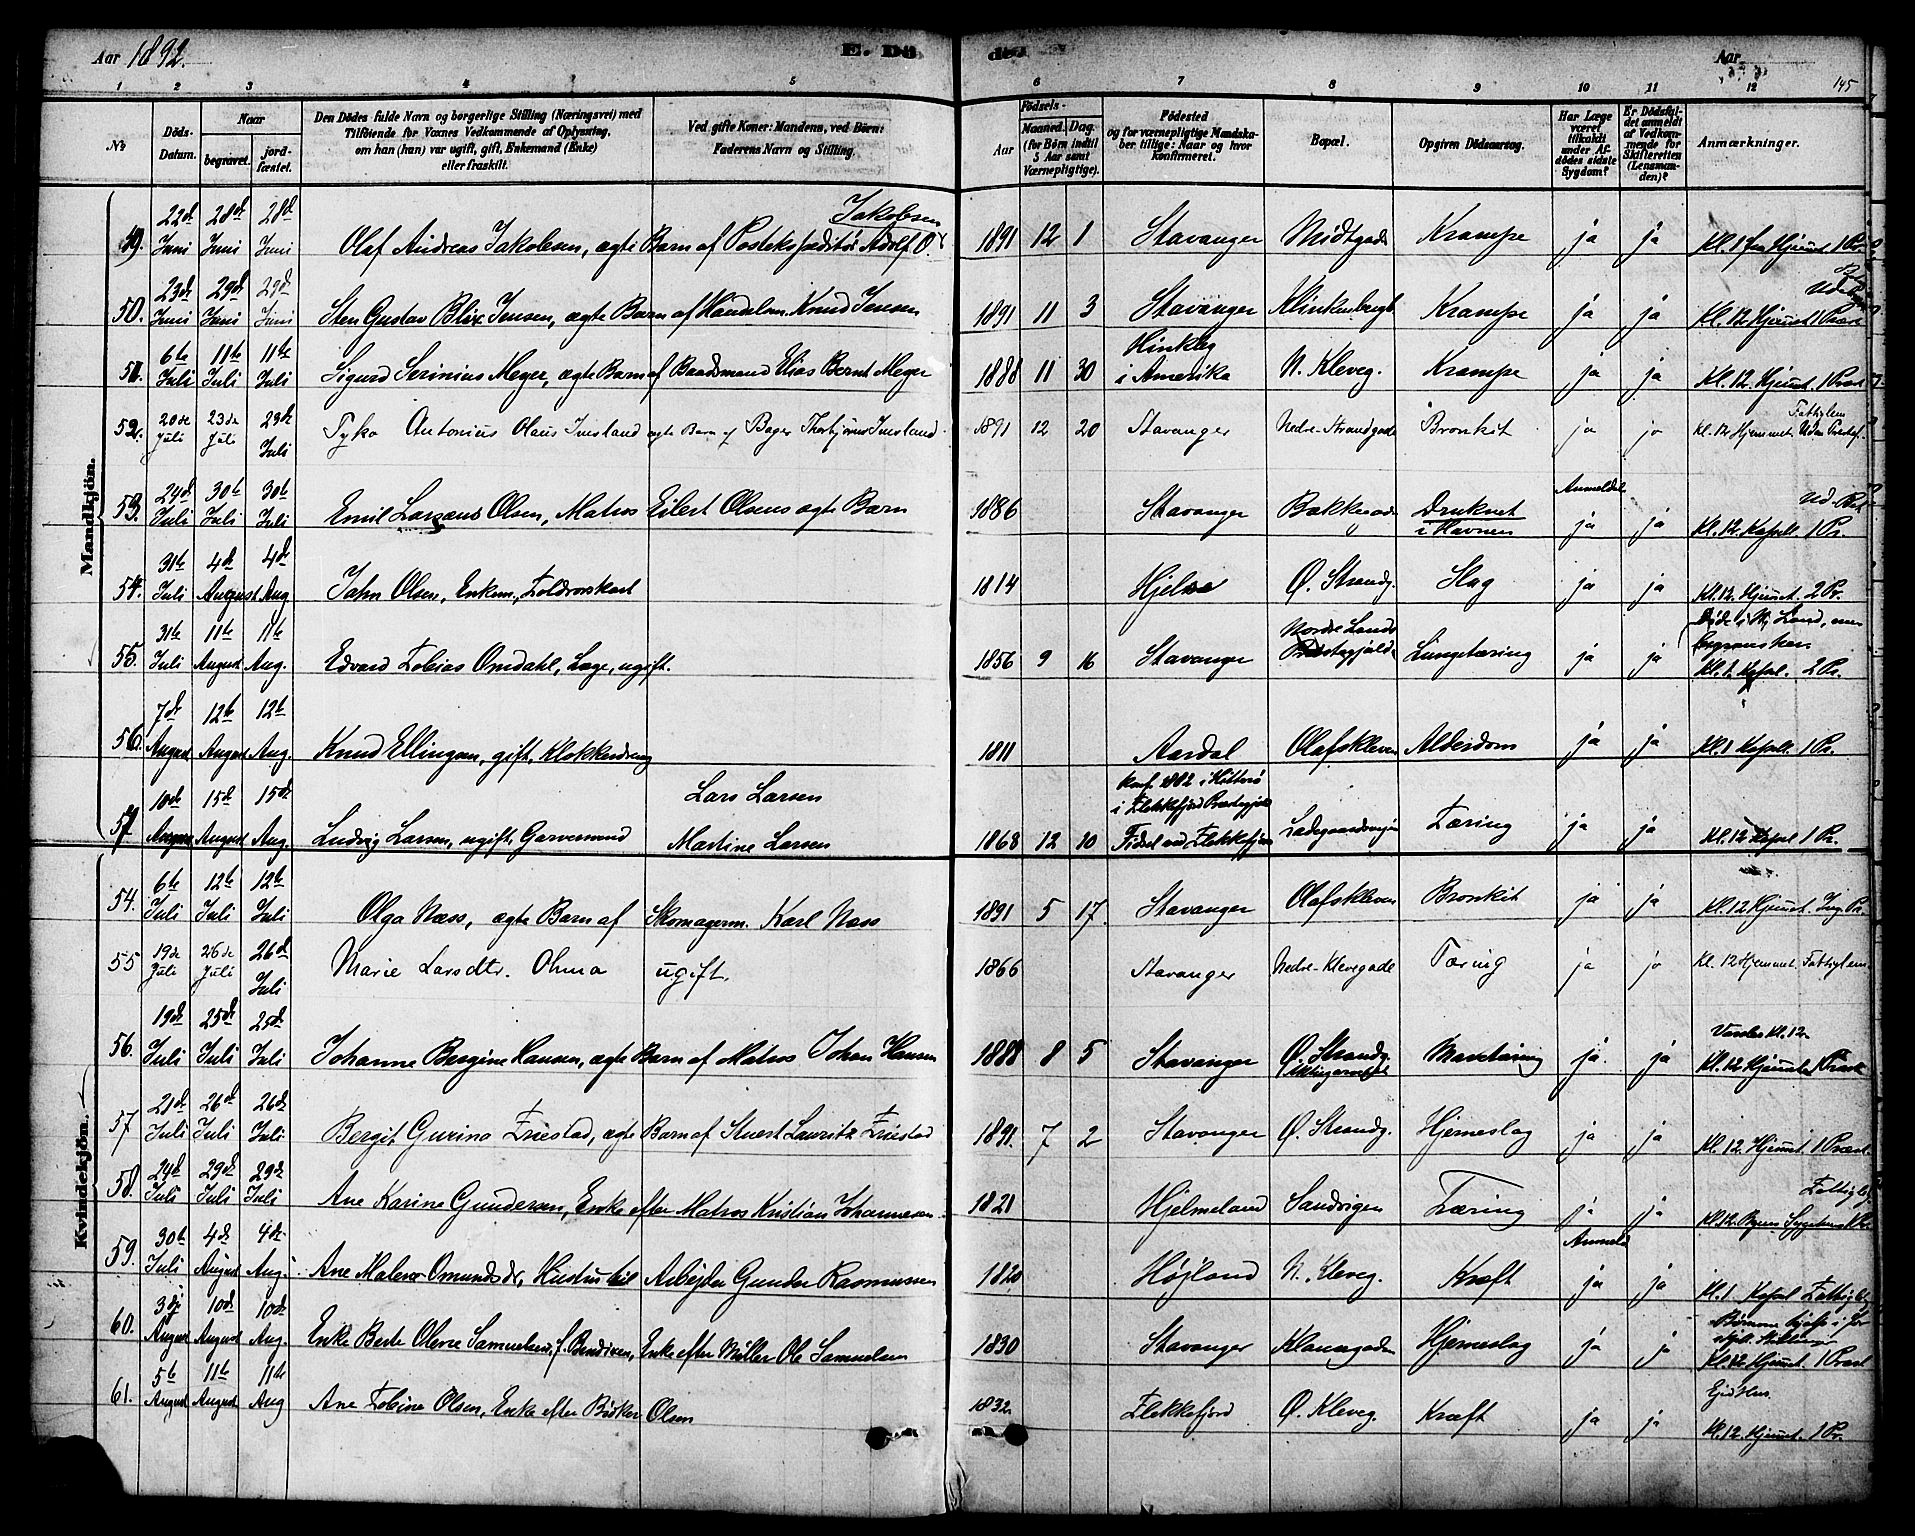 Aar 1892.
E. Dö
de.
Aar
145
1 2 3 4 5 6 7 8 9 10 11 12
No
Döds-Datum.
Naar
begravet.
jordfæstet.
Den Dödes fulde Navn og borgerlige Stilling (Næringsvei) med
Tilföiende for Voxnes Vedkommende af Oplysning,
om han (hun) var ugift, gift, Enkemand (Enke)
eller fraskilt.
Ved gifte Koner: Mandens, ved Börn:
Faderens Navn og Stilling.
Födsels-
Aar
Maaned. Dag.
(for Börn indtil
5 Aar samt
Værnepligtige).
Födested
og for værnepligtige Mandska-
ber tillige: Naar og hvor
konfirmeret.
Bopæl.
Opgiven Dödsaarsag.
Har Læge
været
tilkaldt
under Af-
dödes sidste
Sygdom?
Er Dödsfal-
det anmeldt
af Vedkom-
mende for
Skifteretten
(Lensman-
den)?
Anmærkninger.
Mandkjön.
49. 22de Juni 28de Juni 28de Juni Olaf Andreas Jakobsen, ægte Barn af Postekspeditör Adolf O. Jakobsen 1891 12 1 Stavanger Midtgade Krampe ja ja Kl. 1 fra Hjemmet 1 Pr.
50. 23de Juni 29de Juni 29de Juni Sten Gustav Blix Jensen, ægte Barn af Handelsm. Knud Jensen 1891 11 3 Stavanger Klinkenbergt Krampe ja ja Kl. 12. Hjemmet 1 Præst
51. 6te Juli 11te Juli 11te Juli Sigurd Serinius Meyer, ægte Barn af Baadsmand Elias Bernt Meyer 1888 11 30 Hinkley i Amerika N. Kleveg. Krampe ja ja Kl. 12. Hjemmet. 1 Præst
52. 20de Juli 23de Juli 23de Juli Tyko Antonius Olaus Ivesland ægte Barn af Bager Thorbjörn Ivesland. 1891 12 20 Stavanger Nedre-Strandgade Bronkit ja ja Kl. 12 Hjemmet. Uden Præst. Fattiglem
53. 24de Juli 30te Juli 30te Juli Emil Larsens Olsen, Matros Eilert Olsens ægte Barn 1886 Stavanger Bakkegade Druknet i Havnen Anmeldt ja ja Kl. 12. Kapell. 1 Pr.
54. 31te Juli 4de August 4de Aug John Olsen, Enkem., Toldrorskarl 1814 Hjelme Ö. Strandg. Slag ja ja Kl. 12. Hjemmet. 2 Pr.
55. 31te Juli 11te August 11te Aug. Edvard Tobias Omdahl, Læge, ugift. 1856 9 16 Stavanger Nordre Lands Præstegjæld Lungetæring ja ja Döde i N. Land, men begravesher. Kl. 1. Kapel. 2 Pr.
56. 7de August 12te August 12te Aug. Knud Ellingsen, gift, Klokkedreng 1811 Aardal Olafskleven Alderdom ja ja Kl. 1 Kapell. 1 Pr.
57 10de August 15de August 15de Aug. Ludvig Larsen, ugift, Garversvend Lars Larsen Martine Larsen 1868 12 10 Konf. 1882 i Hitterö i Flekkefjord Præstegjæld Födsel ved Flekkefjord Ladegaardsveien Tæring ja ja Kl. 12 Kapel 1 Pr.
Kvindekjön.
54. 6te Juli 12te Juli 12te Juli Olga Næss, ægte Barn af Skomagerm. Karl Næss 1891 5 17. Stavanger Olafskleven Bronkit ja ja Kl. 12 Hjemmet. Ing. Pr.
55 19de Juli 26de Juli 26de Juli Marie Larsdtr. Ohma ugift. 1866 Stavanger Nedre-Klevegade Tæring ja ja Kl. 12 Hjemmet. Fattiglem.
56. 19de Juli 25de Juli 25de Juli Johanne Bergine Hansen, ægte Barn af Matros Johan Hansen 1888 8 5 Stavanger Ö. Strandg. Mavetæring ja. ja Kl. 12 Hjemmet 1 Præst
57 21de Juli 26de Juli 26de Juli Bergit Gurina Friestad, ægte Barn af Stuert Lauritz Friestad 1891. 7 2 Stavanger Ö. Strandg. Hjerneslag ja ja Kl. 12. Hjemmet. 1 Præst.
58. 24de Juli 29de Juli 29de Juli Ane Karine Gundersen, Enke efter Matros Kristian Johannesen. 1821 Hjelmeland Sandvigen Tæring ja ja Kl. 12. Byens Sygehus 1 Pr.
59. 30te Juli 4de August 4de Aug. Ane Malene Omundsdr, Hustru til Arbeider Gunder Rasmussen 1820 Höjland N. Kleveg. Kræft Anmeldt ja ja Kl. 1 Kapel Fattigleg
60. 3dje August 10de August 10de Aug. Enke Berte Olene Samuelsen f. Bendixen, Enke efter Möller Ole Samuelsen 1830 Stavanger Klavegaden Hjerneslag ja ja Kl. 12 Hjemmet. 1 Præst
61. 5te August 11te August 11te Aug Ane Tobine Olsen, Enke efter Bödker Olsen 1832 Flekkefjord Ö. Kleveg. Kræft ja ja Kl. 12. Hjemmet. 1 Pr.